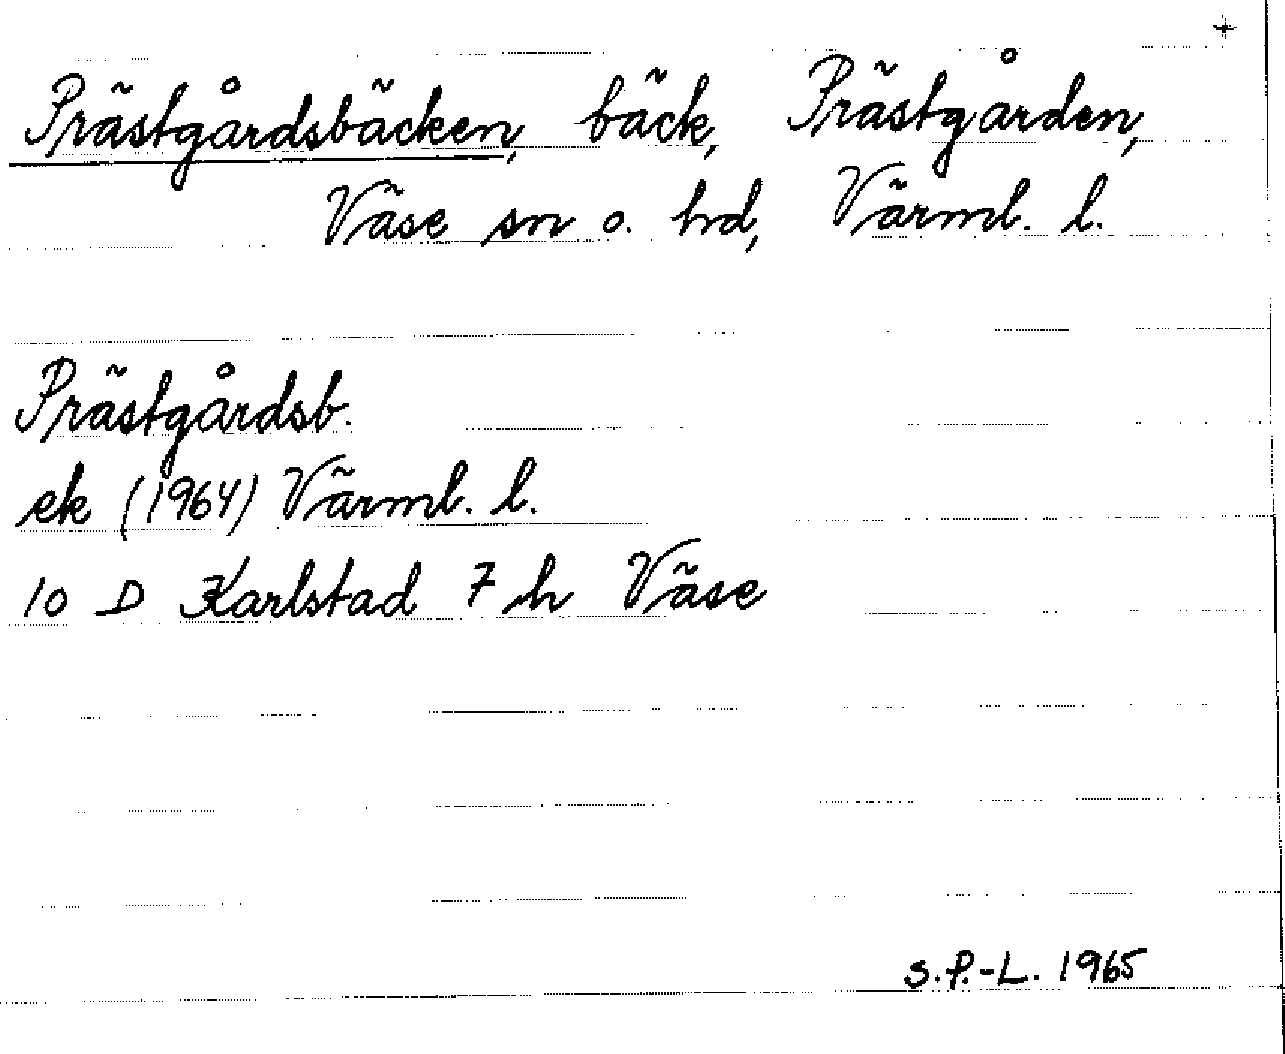 +
Prästgårdsbäcken, bäck, Prästgården,
Väse sn o. hd, Värml. l.
Prästgårdsb.
ek (1964) Värml. l.
10 D Karlstad 7 h Väse
S.P.-L. 1965